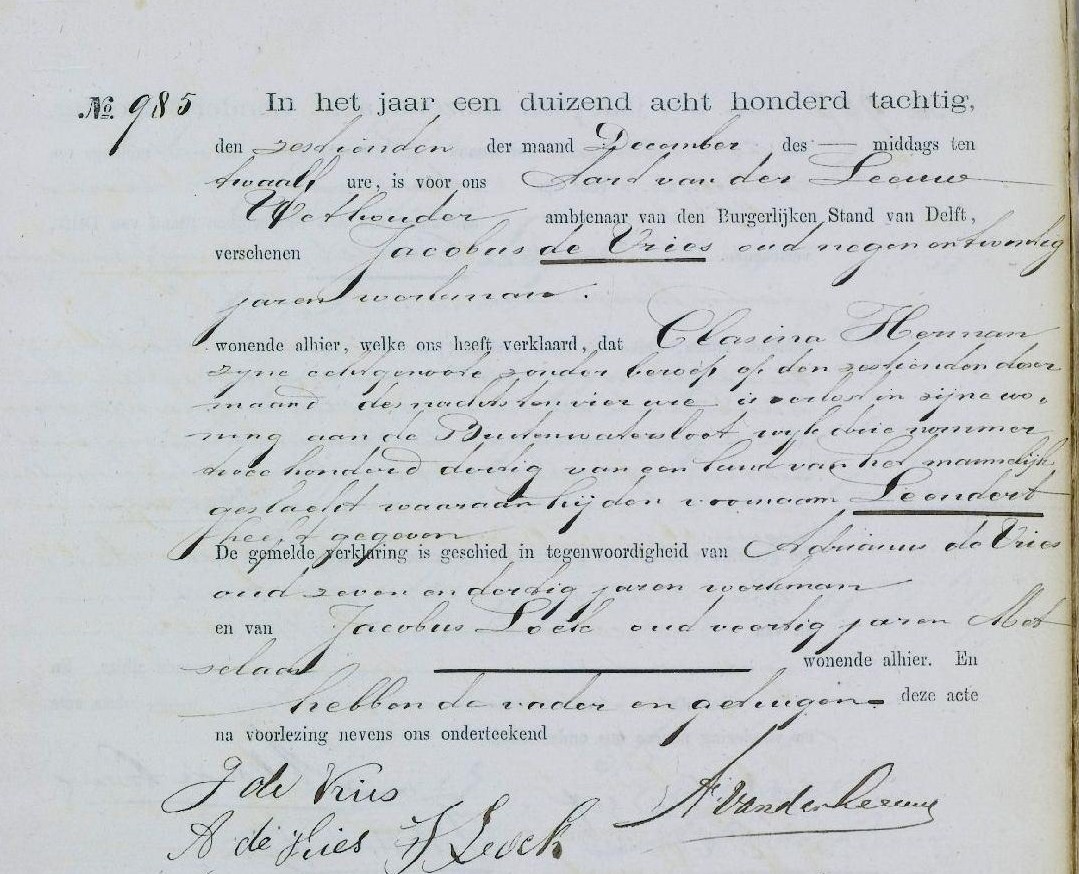 No. 985 In het jaar een duizend acht honderd tachtig,
den zestienden der maand December des — middags ten
twaalf ure, is voor ons Aart van der Leeuw
Wethouder ambtenaar van den Burgerlijken Stand van Delft,
verschenen Jacobus de Vries oud negen en twintig
jaren werkman.
wonende alhier, welke ons heeft verklaard, dat Clasina Herman
zijne echtgenoote zonder beroep op den zestienden dezer
maand des nachts ten vier ure is verlost in zijne wo-
ning aan de Buitenwatersloot wijk drie nommer
twee honderd dertig van een kind van het mannelijk
geslacht waaraan hij den voornaam Leendert
heeft gegeven
De gemelde verklaring is geschied in tegenwoordigheid van Adrianus de Vries
oud zeven en dertig jaren werkman
en van Jacobus oud veertig jaren Met
selaar wonende alhier. En
hebben de vader en getuigen deze acte
na voorlezing nevens ons onderteekend
J de Vries
A van der Leeuw
A de Vries J